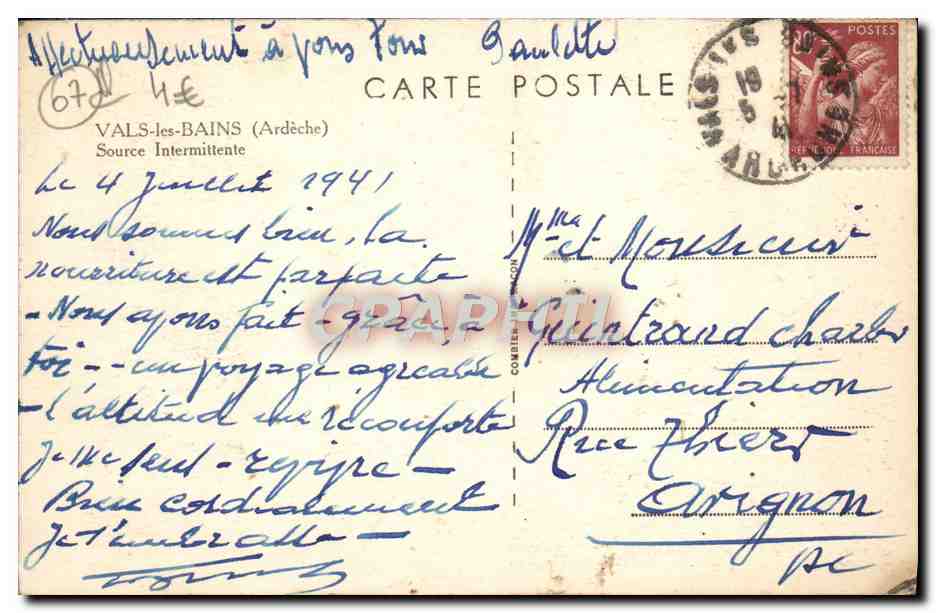 Affectueusement à vous tous Paulette
67d 4€
CARTE POSTALE
VALS-les-BAINS (Ardèche)
Source Intermittente
POSTES
RÉPUBLIQUE FRANÇAISE
VALS-LES-BAINS
ARDÈCHE
Le 4 Juillet 1941
Nous sommes bien, la
nourriture est parfaite
- Nous ayons fait - grâce à
toi - - un voyage agréable
- l'altitude me réconforte
Je me sens - revivre -
Bien cordialement
Je t'embrasse -
COMBIER IMP. MACON
CPAPHIL
Mme et Monsieur
Guintrand Charles
Alimentation
Rue Thiers
Avignon